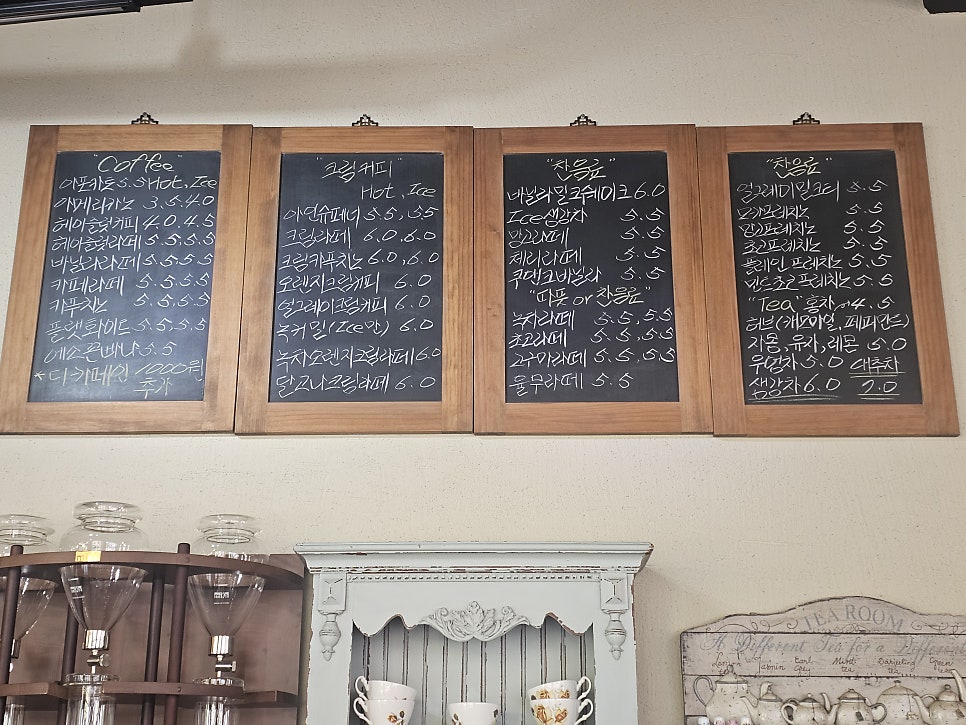 "Coffee"
아포카토 5.5 Hot, Ice
아메리카노 3.5, 4.0
헤이즐럿커피 4.0, 4.5
헤이즐럿라떼 5.5, 5.5
바닐라라떼 5.5, 5.5
카페라떼 5.5, 5.5
카푸치노 5.5, 5.5
플랫화이트 5.5, 5.5
에소콘빠나 5.5
*디카페인 1000원
추가
"크림커피"
Hot, Ice
아인슈페너 5.5, 5.5
크림라떼 6.0, 6.0
크림카푸치노 6.0, 6.0
오렌지크림커피 6.0
얼그레이크림커피 6.0
녹커밀(Ice만) 6.0
녹차오렌지크림라떼 6.0
달고나크림라떼 6.0
"찬음료"
바닐라밀크쉐이크 6.0
Ice생강차 5.5
망고라떼 5.5
체리라떼 5.5
쿠앤크바닐라 5.5
"따뜻 or 찬음료"
녹차라떼 5.5, 5.5
초코라떼 5.5, 5.5
고구마라떼 5.5, 5.5
율무라떼 5.5
"찬음료"
얼그레이밀크티 5.5
모카프레치노 5.5
망고프레치노 5.5
초코프레치노 5.5
플레인 프레치노 5.5
민트초코프레치노 5.5
"Tea" 홍차 4.5
허브(캐모마일, 페퍼민트)
자몽, 유자, 레몬 5.0
우엉차 5.0 대추차
생강차 6.0 7.0
TEA ROOM
A Different Tea for a Different
Jasmin
Earl Grey
Mint tea
Darjeeling
Green tea